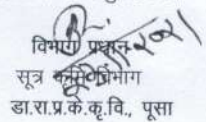 विभाग प्रधान
सूत्र कृमि विभाग
डा.रा.प्र.के.कृ.वि., पूसा